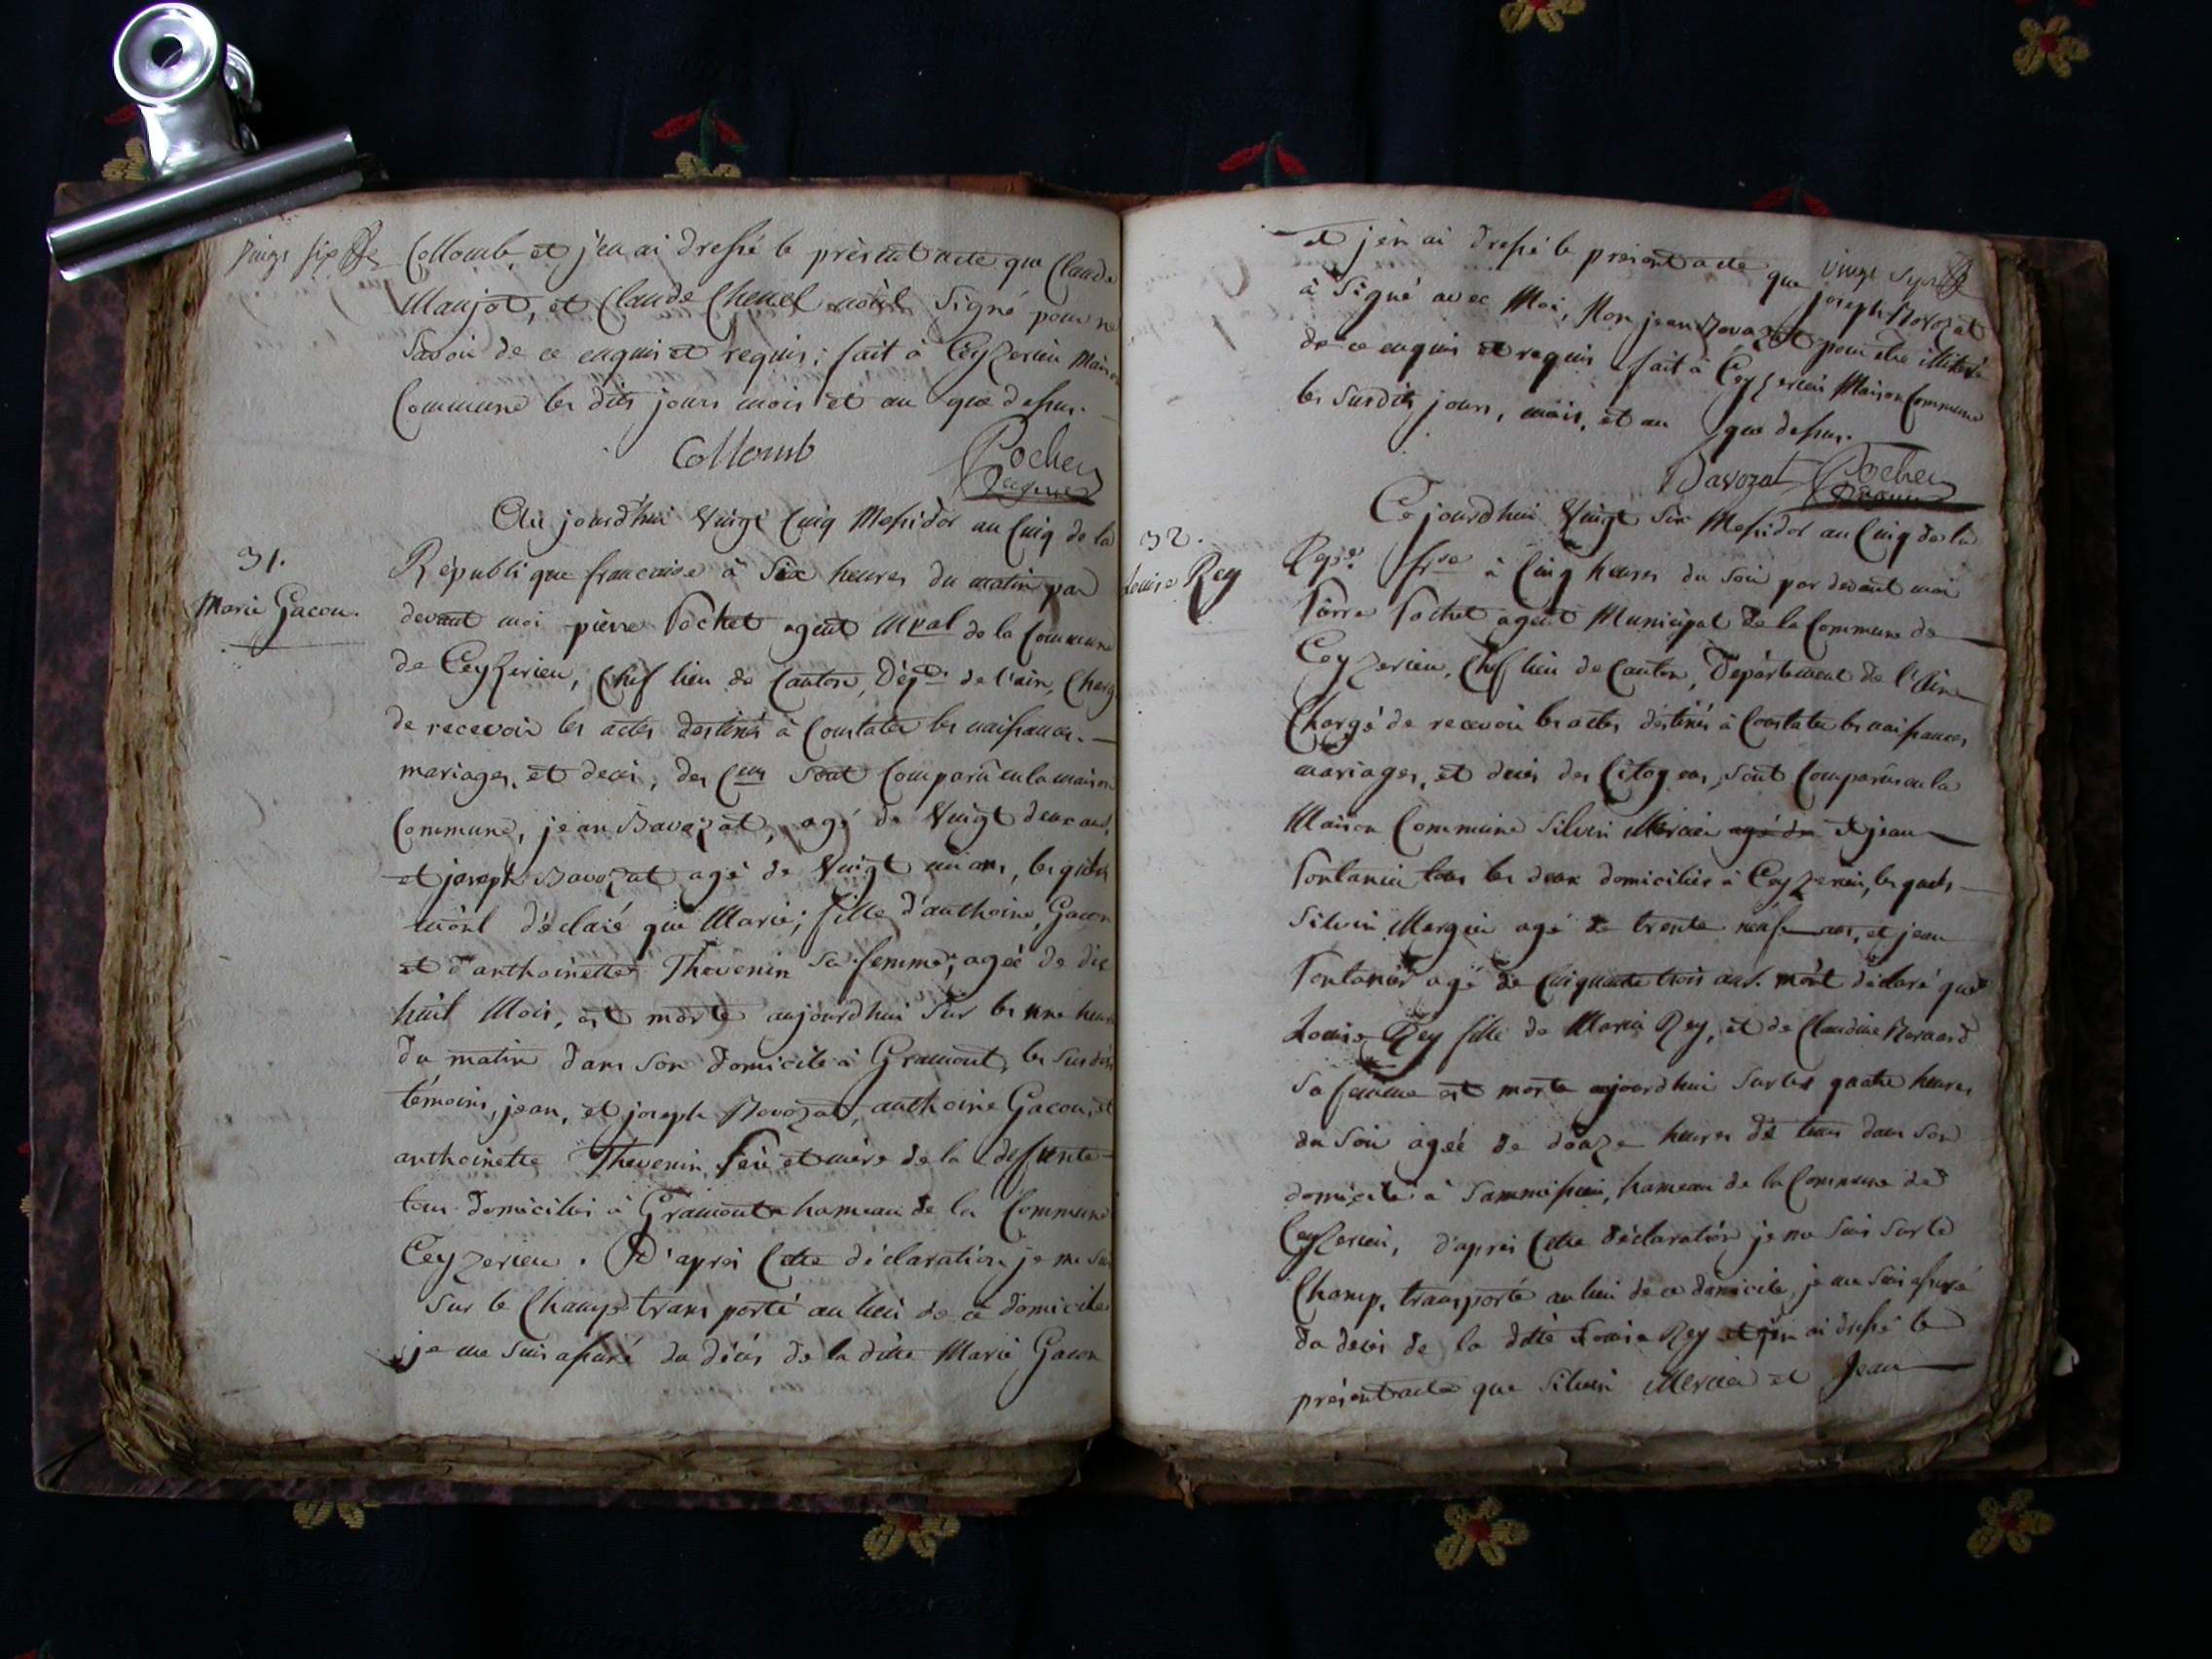 vingt six
Collomb, et j'en ai dressé le présent acte que Claude
Maujot, et Claude Chenel n'ont Signé pour ne
Savoir de ce enquis et requis; fait à Ceyzerieu Maison
Commune les dits jours mois et an que dessus.
Collomb Pochet
agent
Au jourd'hui Vingt Cinq Messidor an Cinq de la
31.
Marie Gacon.
République francaise à Six heures du matin par
devant moi pierre Pochet agent Mpal de la Commune
de Ceyzerieu, Chef lieu de Canton, Dépt. de l'ain, Chargé
de recevoir les actes destinés à Constater les naissances.
mariages, et deces, des Cens sont Comparû en la maison
Commune, jean Bavozat, agé de Vingt deux ans,
et joseph Bavozat agé de Vingt un ans, les quels
m'ont déclaré que Marie; fille d'anthoine Gacon
et d'anthoinette Thevenin sa femme, agée de dix
huit Mois, est morte aujourdhui Sur les une heure
du matin dans son domicile à Gramont, les susdits
témoins, jean, et joseph Bovozat, anthoine Gacon, et
anthoinette Thevenin, père et mère de la defunte
tous domiciliés à Gramont hameau de la Commune
Ceyzerieu. D'après Cette déclaration je me suis
sur le Champ transporté au lieu de ce domicile
je me suis assuré du décès de la dite Marie Gacon
vingt sept
et j'en ai dressé le présent acte que joseph Bovozat
à Signé avec Moi, Non jean Bovozat pour être illiteré
de ce enquis et requis fait à Ceyzerieu Maison Commune
les susdits jours, mois, et an que dessus.
Bavozat Pochet
agent
Ce jourdhui Vingt Six Messidor an Cinq de la
32.
Louise Rey
Repe. frse à Cinq heures du soir par devant moi
Pierre Pochet agent Municipal de la Commune de
Ceyzerieu, Chef lieu de Canton, Département de l'Ain
Chargé de recevoir les actes déstinés à Constater les naissances
mariages, et deces des Citoyens, sont Comparûs en la
Maison Commune Silvin Mercier agé de et jean
Fontanier tous les deux domiciliés à Ceyzerieu, les quels
Silvin Mergier agé de trente neuf ans, et jean
Fontanier agé de Cinquante trois ans. m'ont déclaré que
Louise Rey fille de Marin Rey, et de Claudine Bernard
sa femme est morte aujourdhui sur les quatre heures
du Soir agée de douze heures de tems dans son
domicile à Sammissieu, hameau de la Commune de
Ceyzerieu, d'après Cette déclaration je me suis sur le
Champ, transporté au lieu de ce domicile, je me suis assuré
du décès de la dite Louise Rey et j'en ai dressé le
présent acte que Silvin Mercier et Jean